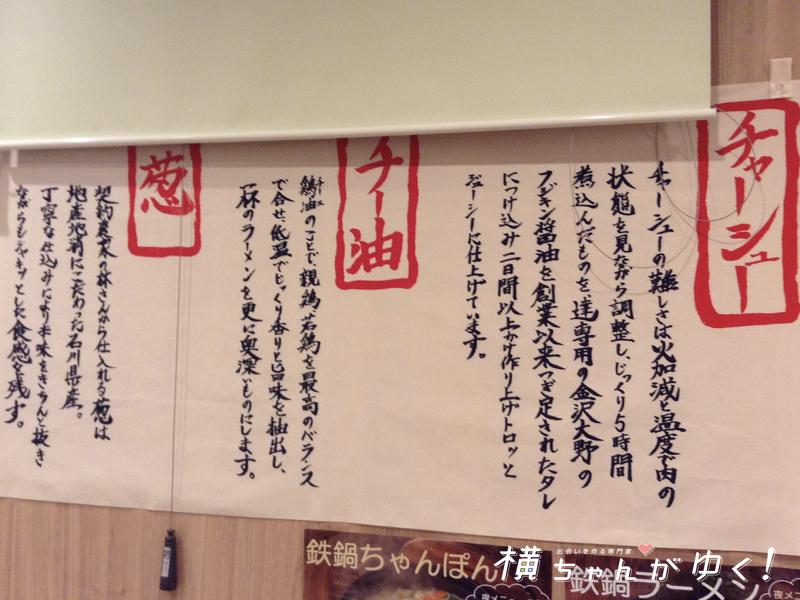 チャーシュー
チャーシューの難しさは火加減と温度で肉の
状態を見ながら調整し、じっくり5時間
煮込んだものを、達専用の金沢大野の
フジキン醤油を創業以来つぎ足されたタレ
につけ込み二日間以上かけ作り上げトロッと
ジューシーに仕上げています。
チー油
鶏油のことで親鶏、若鶏を最高のバランス
で合せ、低温でじっくり香りと旨味を抽出し、
一杯のラーメンを更に奥深いものにします。
葱
契約農家の林さんから仕入れる葱は
地産地消にこだわった石川県産。
丁寧な仕込みにより辛味をきちんと抜き
ながらもシャキッとした食感を残す。
鉄鍋ちゃんぽん
鉄鍋ラーメン
夜メニ
夜メニ
出会いを作る専門家
横ちゃんがゆく!